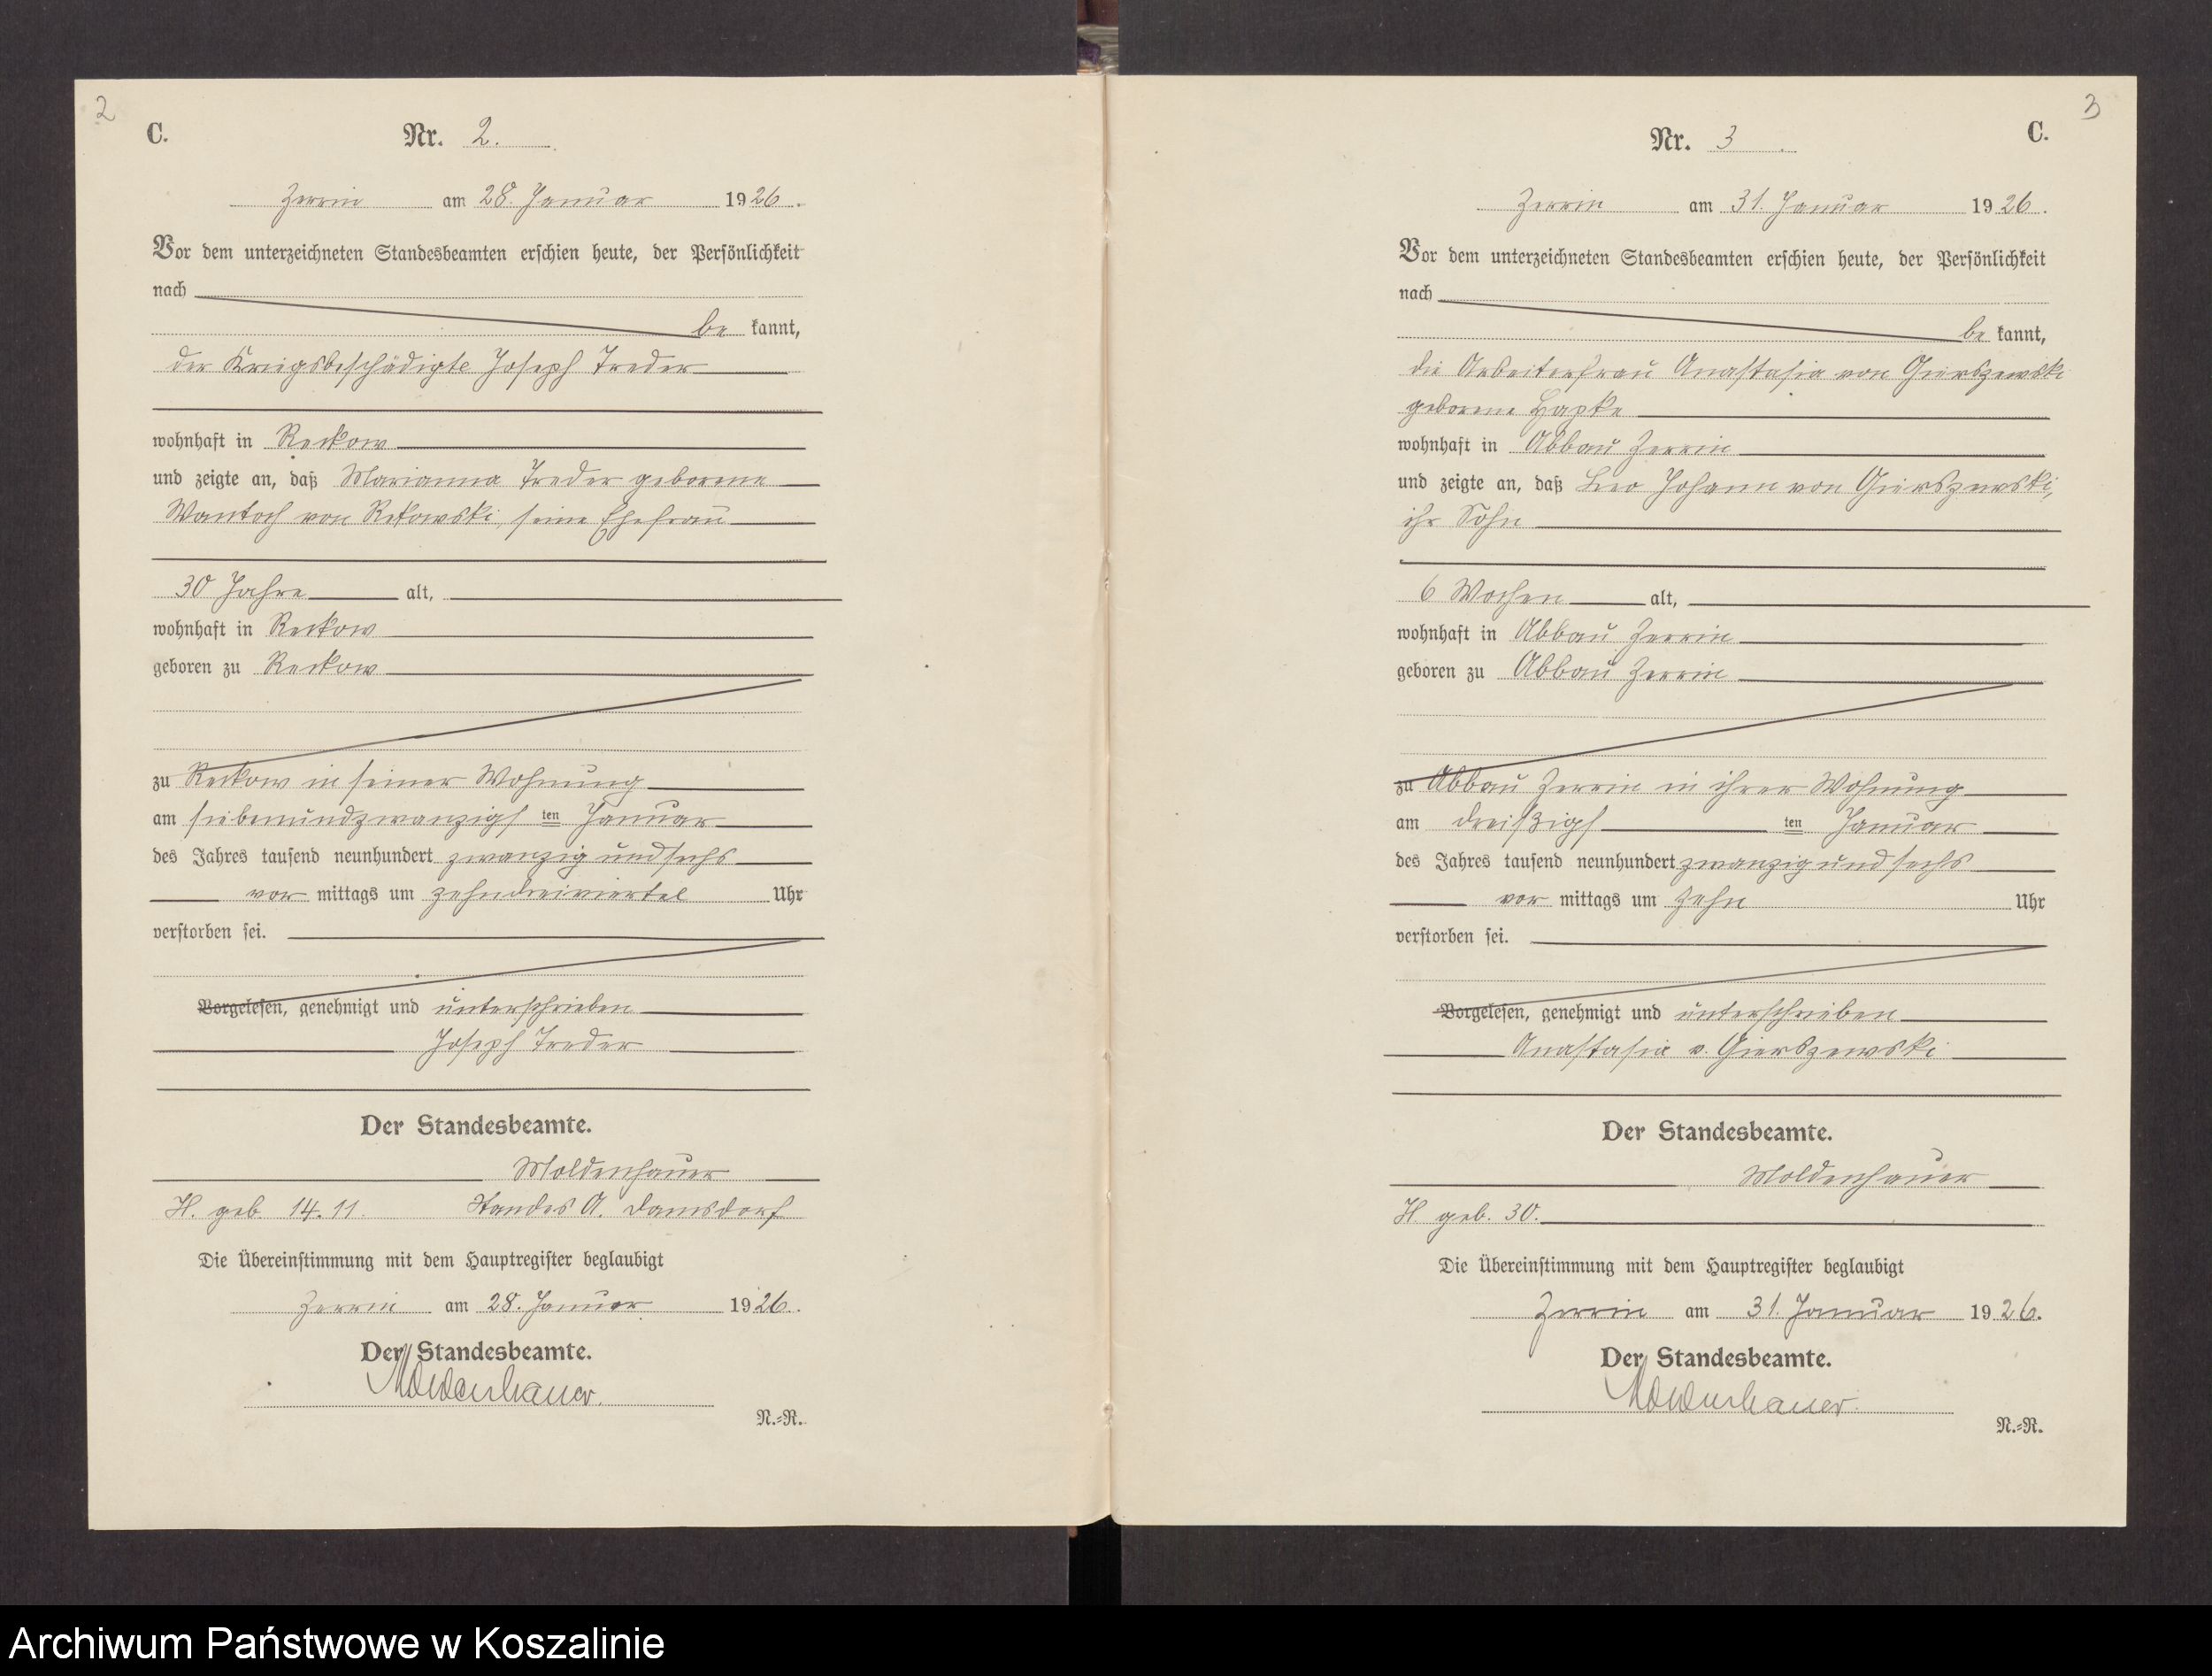 2
C.
Nr. 2.
Zerrin am 28. Januar 1926.
Vor dem unterzeichneten Standesbeamten erschien heute, der Persönlichkeit
nach
be kannt,
der Kriegsbeschädigte Joseph Treder
wohnhaft in Reckow
und zeigte an, daß Marianna Treder geborene
Wantoch von Rekowski, seine Ehefrau
30 Jahre alt,
wohnhaft in Reckow
geboren zu Reckow
zu Reckow in seiner Wohnung
am siebenundzwanzigs ten Januar
des Jahres tausend neunhundert zwanzig und sechs
vor mittags um zehndreiviertel Uhr
verstorben sei.
Vorgelesen, genehmigt und unterschrieben
Joseph Treder
Der Standesbeamte.
Moldenhauer
H. geb. 14.11. Standes A. Damsdorf
Die Übereinstimmung mit dem Hauptregister beglaubigt
Zerrin am 28. Januar 1926.
Der Standesbeamte.
Moldenhauer.
N.=R.
3
C.
Nr. 3
Zerrin am 31. Januar 1926.
Vor dem unterzeichneten Standesbeamten erschien heute, der Persönlichkeit
nach
be kannt,
die Arbeiterfrau Anastasia von Gierszewski
geborene Hapke
wohnhaft in Abbau Zerrin
und zeigte an, daß Leo Johann von Gierszewski,
ihr Sohn
6 Wochen alt,
wohnhaft in Abbau Zerrin
geboren zu Abbau Zerrin
zu Abbau Zerrin in ihrer Wohnung
am dreißigs ten Januar
des Jahres tausend neunhundert zwanzig und sechs
vor mittags um zehn Uhr
verstorben sei.
Vorgelesen, genehmigt und unterschrieben
Anastasia v. Gierszewski
Der Standesbeamte.
Moldenhauer
H. geb. 30.
Die Übereinstimmung mit dem Hauptregister beglaubigt
Zerrin am 31. Januar 1926.
Der Standesbeamte.
Moldenhauer.
N.=R.
Archiwum Państwowe w Koszalinie